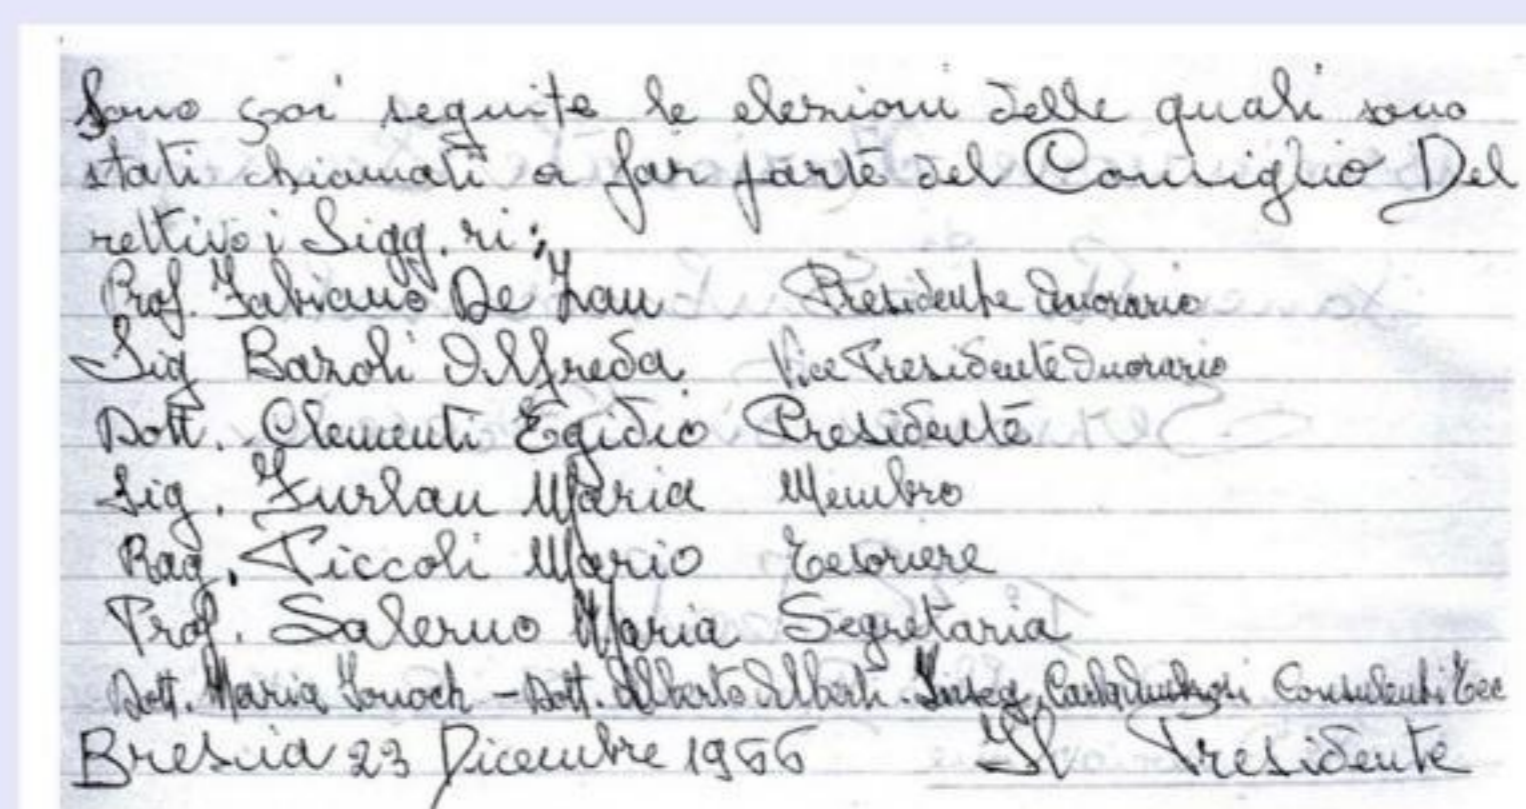 Sono poi seguite le elezioni delle quali sono
stati chiamati a far parte del Consiglio Del
rettivo i Sigg.ri:
Prof. Fabiano De Zan Presidente Onorario
Sig Bazoli Alfreda Vice Presidente Onorario
Dott. Clementi Egidio Presidente
Sig. Furlan Maria Membro
Rag. Piccoli Mario Tesoriere
Prof. Salerno Maria Segretaria
Dott. Maria - Dott. Alberto Alberti. Inseg. Consulenti Tec
Brescia 23 Dicembre 1966 Il Presidente